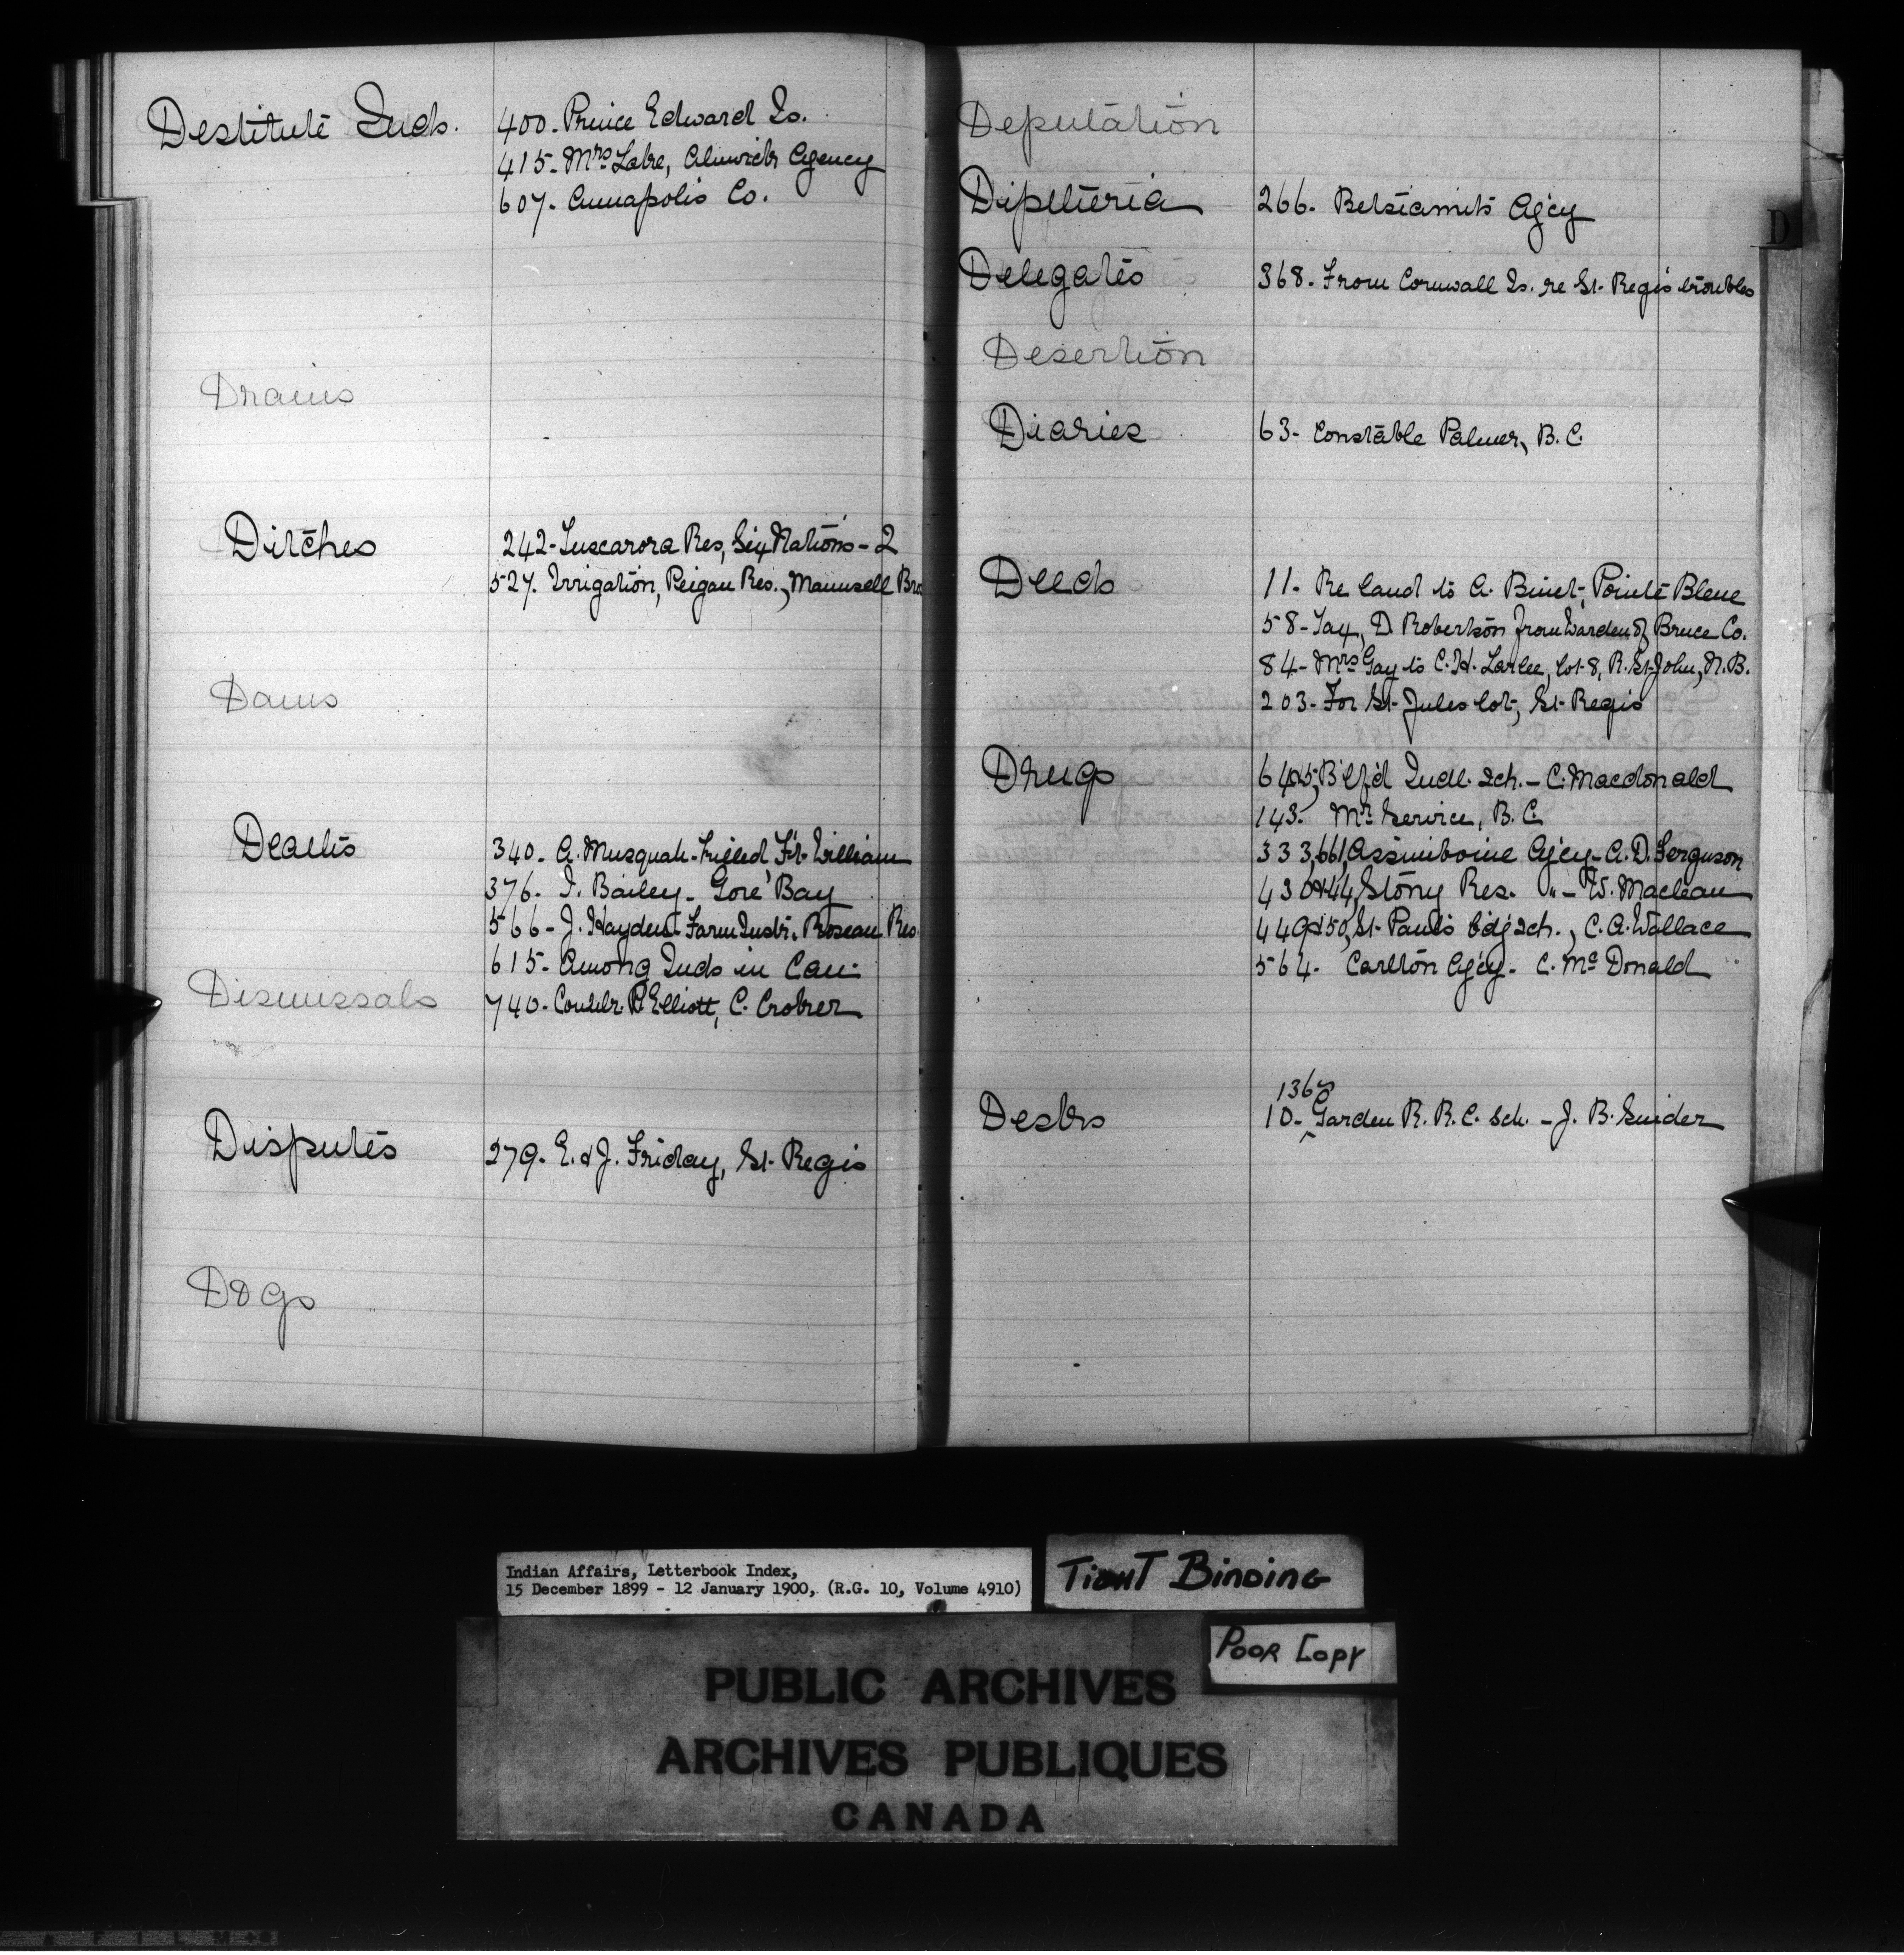 Destitute Inds. 400. Prince Edward Is.
415. Mrs Lake, Alnwick Agency
607. Annapolis Co.
Drains
Ditches 242-Tuscarora Res, Six Nations-2
527. Irrigation, Peigan Res., Maunsell Bro
Dams
Deaths 340. A. Musquah-killed Ft. William
376. I. Bailey- Gore Bay
566- J. Hayden Farm Instr. Roseau Res.
615. Among Inds in Can.
Dismissals
740. Councilr. Elliott, C. Croker
Disputes 279. E. & J. Friday, St. Regis
Dogs
Deputation
Diptheria 266. Betsiamits Ag'cy
D
Delegates 368. From Cornwall Is. re St. Regis troubles
Desertion
Diaries 63- Constable Palmer, B.C.
Deeds 11. Re land to A. Binet, Pointe Bleue
58-Tax, D. Robertson from Warden of Bruce Co.
84- Mrs Gay to C.H. Larlee, lot 8, R. St John, N.B.
203- For St. Jules lot, St. Regis
Drugs 64&5, B'tf'd Indl. Sch. - C. Macdonald
143. Mr. Service, B.C.
333,661, Assiniboine Ag'cy - A.D. Ferguson
430&44, Stony Res. " - W. Maclean
449&50, St. Paul's bd'g sch., C.A. Wallace
564. Carlton Ag'cy. C. McDonald
Desks 136
10- Garden R. R.C. Sch. - J.B. Snider
Indian Affairs, Letterbook Index,
15 December 1899 - 12 January 1900, (R.G. 10, Volume 4910)
TIGHT BINDING
POOR COPY
PUBLIC ARCHIVES
ARCHIVES PUBLIQUES
CANADA